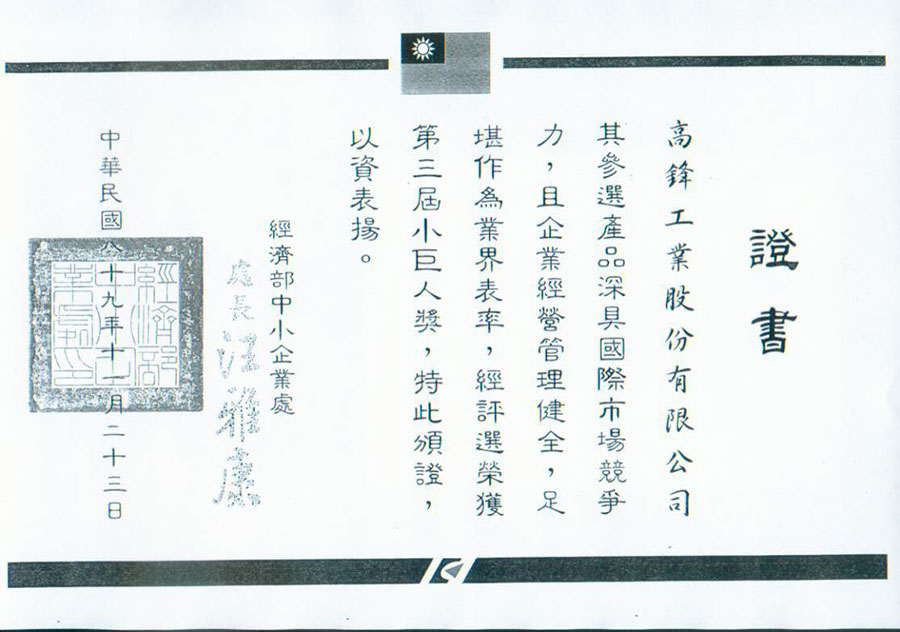 證書
高鋒工業股份有限公司
其參選產品深具國際市場競爭
力，且企業經營管理健全，足
堪作為業界表率，經評選榮獲
第三屆小巨人獎，特此頒證，
以資表揚。
經濟部中小企業處
處長 汪雅康
中華民國八十九年十一月二十三日